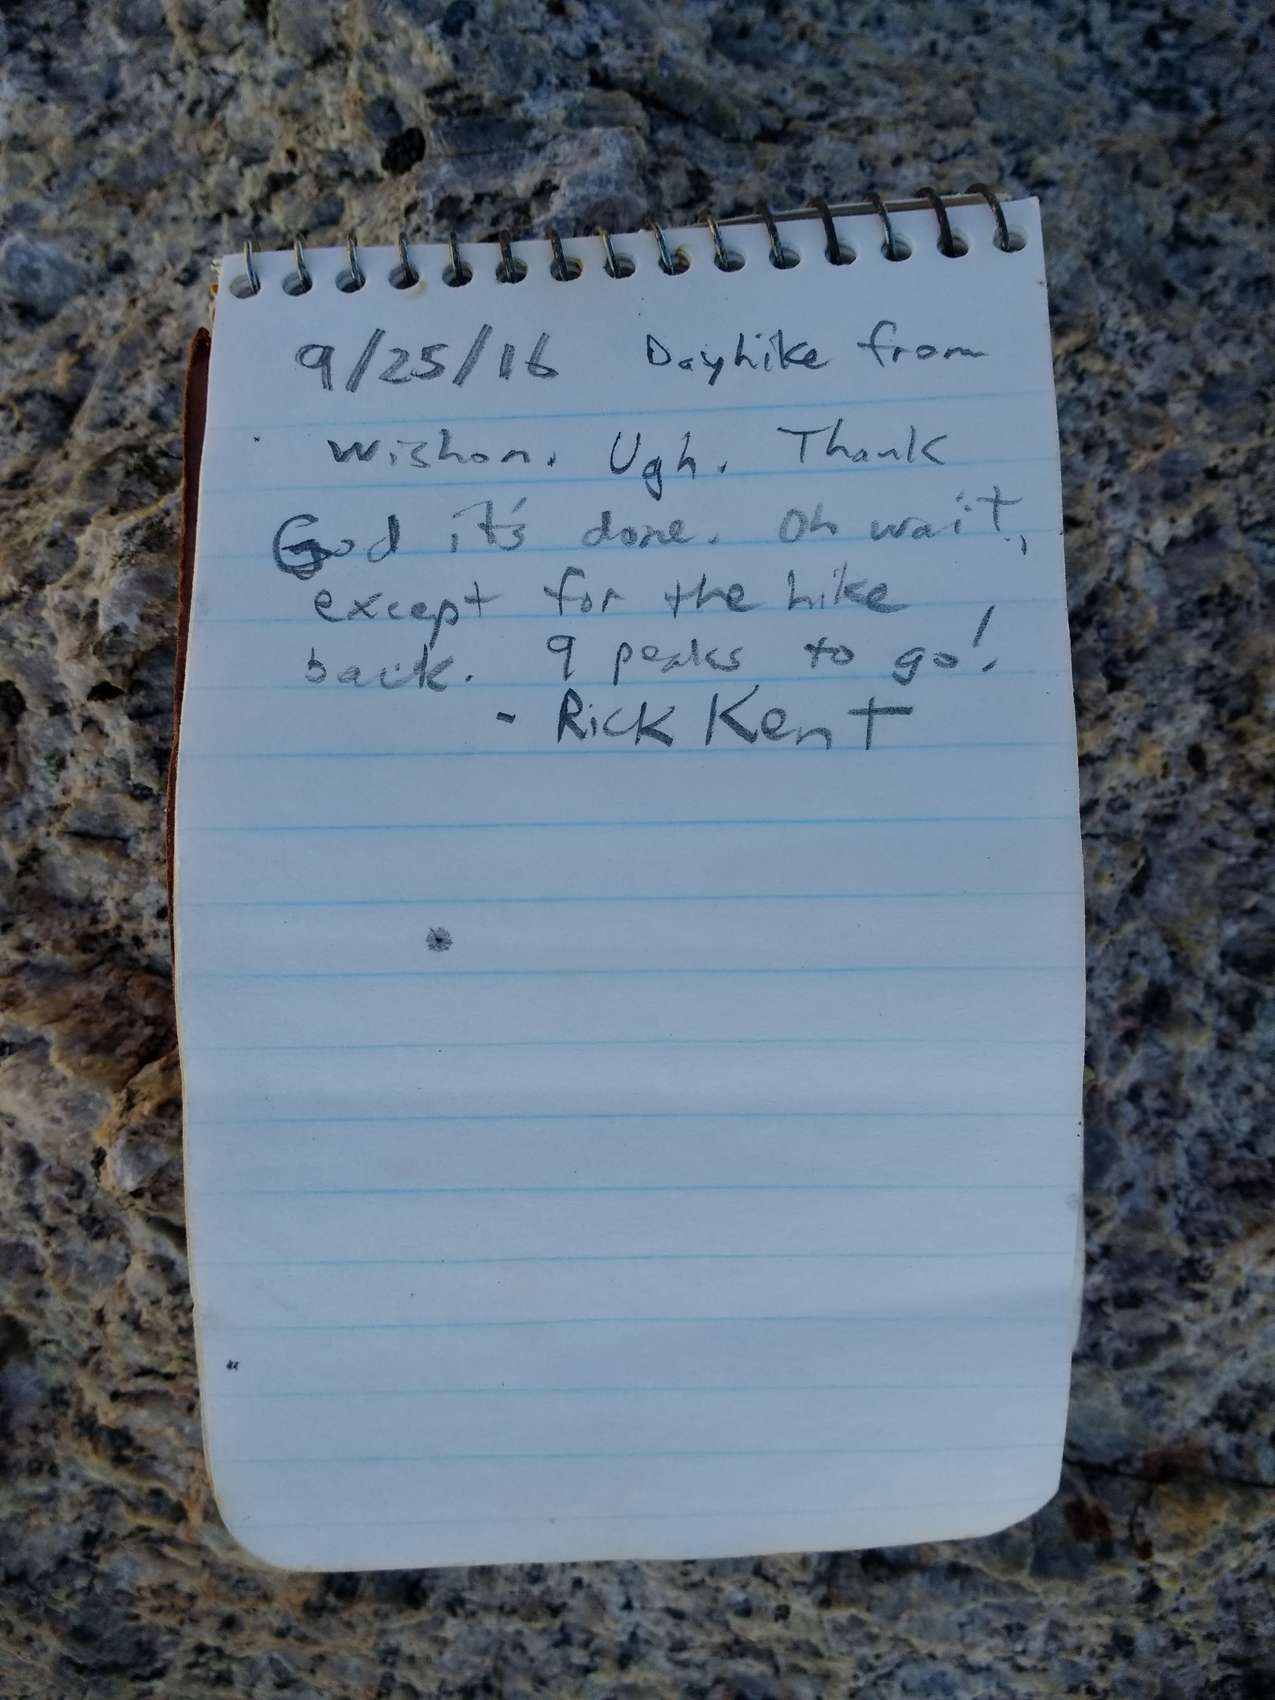 9/25/16 Dayhike from
Wishon. Ugh. Thank
God it's done. Oh wait,
except for the hike
back. 9 peaks to go!
- Rick Kent